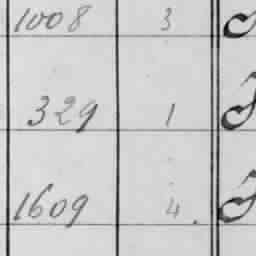 1008 3
329 1
1609 4.